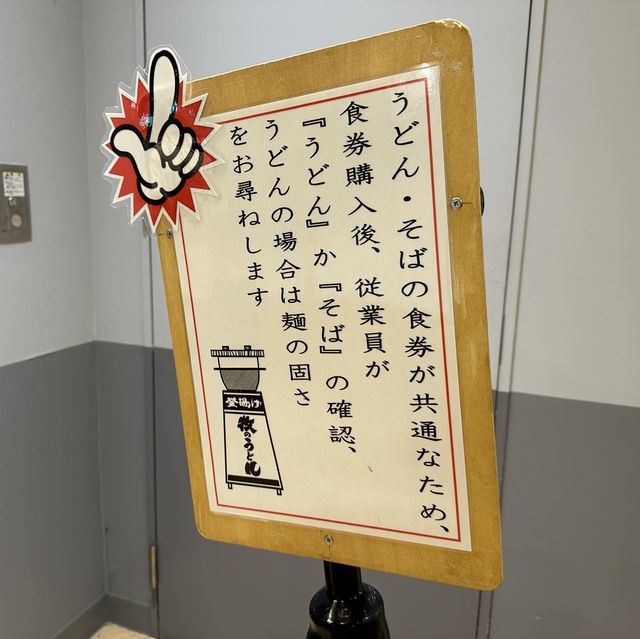 うどん・そばの食券が共通なため、
食券購入後、従業員が
『うどん』か『そば』の確認、
うどんの場合は麺の固さ
をお尋ねします
釜揚げ